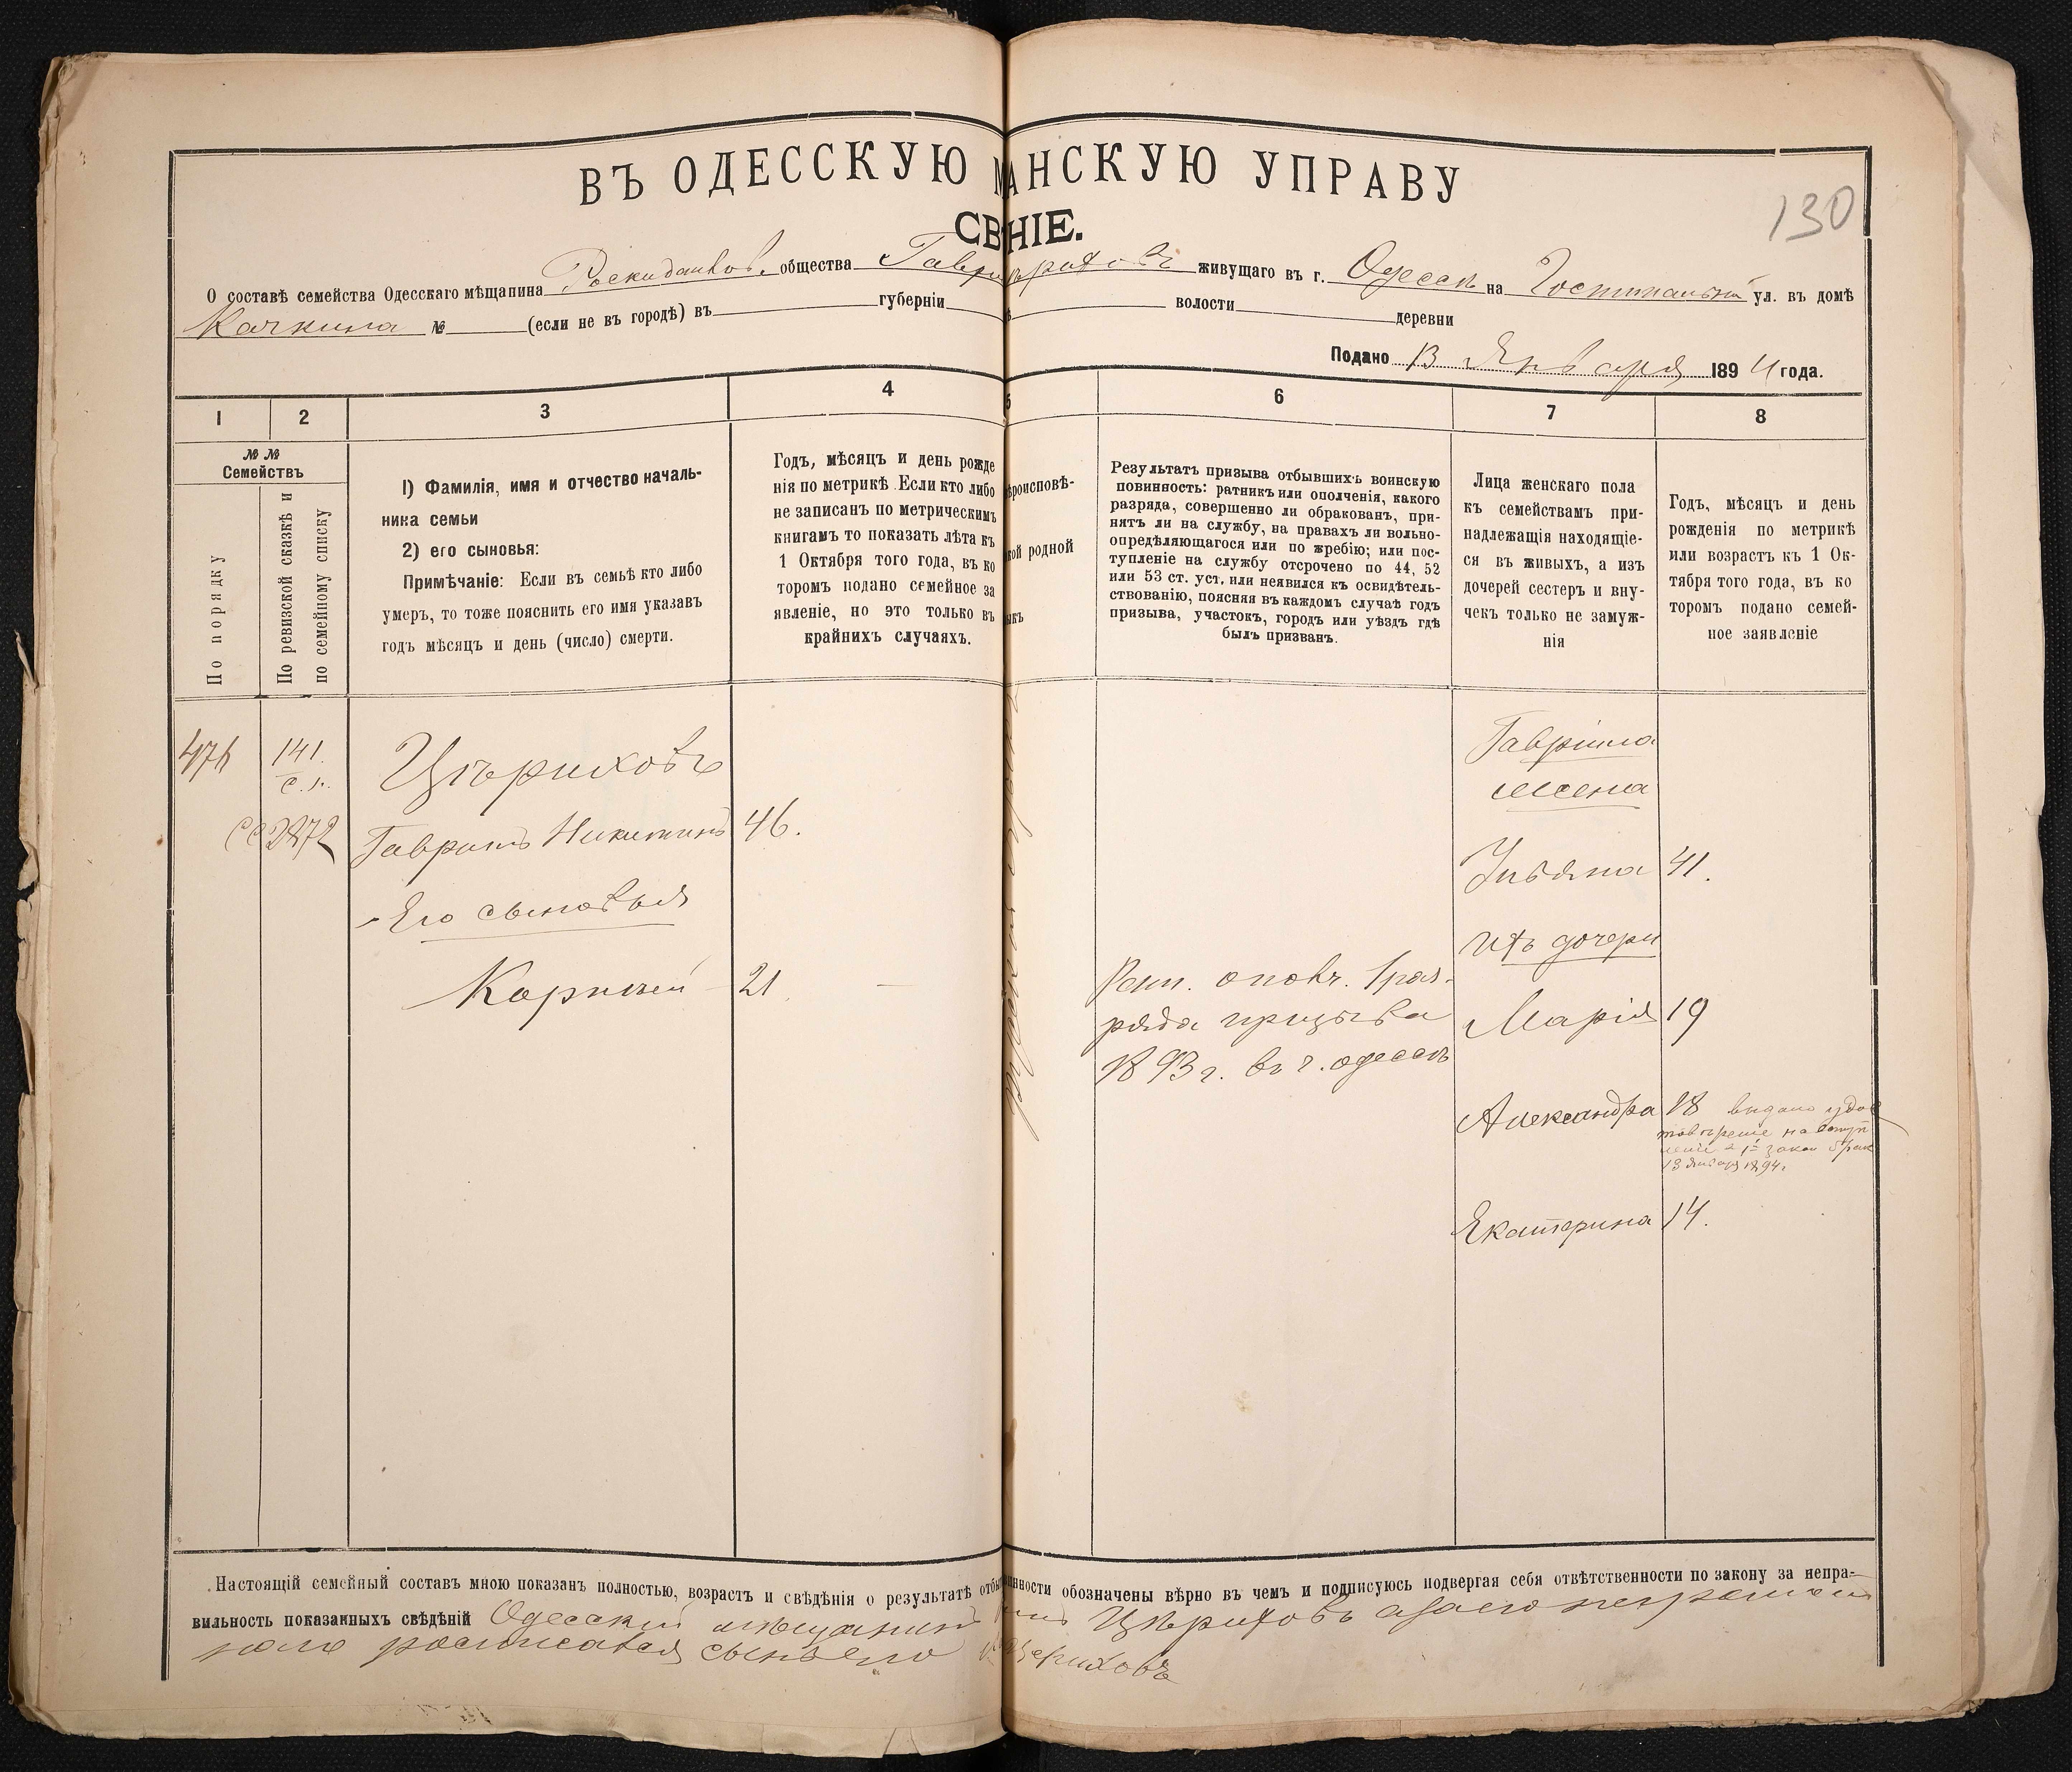 ВЪ ОДЕССКУЮ М АНСКУЮ УПРАВУ
130
СВ НІЕ.
О составѣ семейства Одесскаго мѣщанина общества живущаго въ г. Одессѣ на Госпитальной ул. въ домѣ
Качкина № (если не въ городѣ) въ губерніи волости деревни
Подано 13 Января 1894 года.
1 2 3 4 5 6 7 8
№ № Семействъ
По порядку
По ревизской сказкѣ и
по семейному списку
1) Фамилія, имя и отчество началь-
ника семьи
2) его сыновья:
Примѣчаніе: Если въ семьѣ кто либо
умеръ, то тоже пояснить его имя указавъ
годъ мѣсяцъ и день (число) смерти.
Годъ, мѣсяцъ и день рожде
нія по метрикѣ. Если кто либо
не записанъ по метрическимъ
книгамъ то показать лѣта къ
1 Октября того года, въ ко
торомъ подано семейное за
явленіе, но это только въ
крайнихъ случаяхъ.
ѣроисповѣ-
кой родной
ыкъ
Результатъ призыва отбывшихъ воинскую
повинность: ратникъ или ополченія, какого
разряда, совершенно ли обракованъ, при-
нятъ ли на службу, на правахъ ли вольно-
опредѣляющагося или по жребію; или пос-
тупленіе на службу отсрочено по 44, 52
или 53 ст. уст. или неявился къ освидѣтель-
ствованію, поясняя въ каждомъ случаѣ годъ
призыва, участокъ, городъ или уѣздъ гдѣ
былъ призванъ.
Лица женскаго пола
къ семействамъ при-
надлежащія находящіе-
ся въ живыхъ, а изъ
дочерей сестеръ и вну-
чекъ только не замуж-
нія
Годъ, мѣсяцъ и день
рожденія по метрикѣ
или возрастъ къ 1 Ок-
тября того года, въ ко
торомъ подано семей-
ное заявленіе
476 141. Цѣриховъ
с.п.
СС 2872 Гавриилъ Никитинъ 46.
Его сыновья
Корнилій 21
Рат. ополч. 1 раз-
ряда призыва
1893 г. въ г. Одессѣ
Гавріила
жена
Ульяна 41.
Ихъ дочери
Марія 19
Александра 18 выдано удос
товѣреніе на вступ
леніе въ 1й закон бракъ
13 Января 1894 г.
Екатерина 14.
Настоящій семейный составъ мною показанъ полностью, возрастъ и свѣдѣнія о результатѣ отбы инности обозначены вѣрно въ чемъ и подписуюсь подвергая себя отвѣтственности по закону за непра-
вильность показанныхъ свѣдѣній Одесскій мѣщанинъ Цѣриховъ
росписался сынъ его Цериховъ